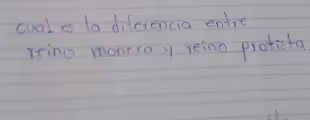 cual es la diferencia entre
reino monera y reino protista